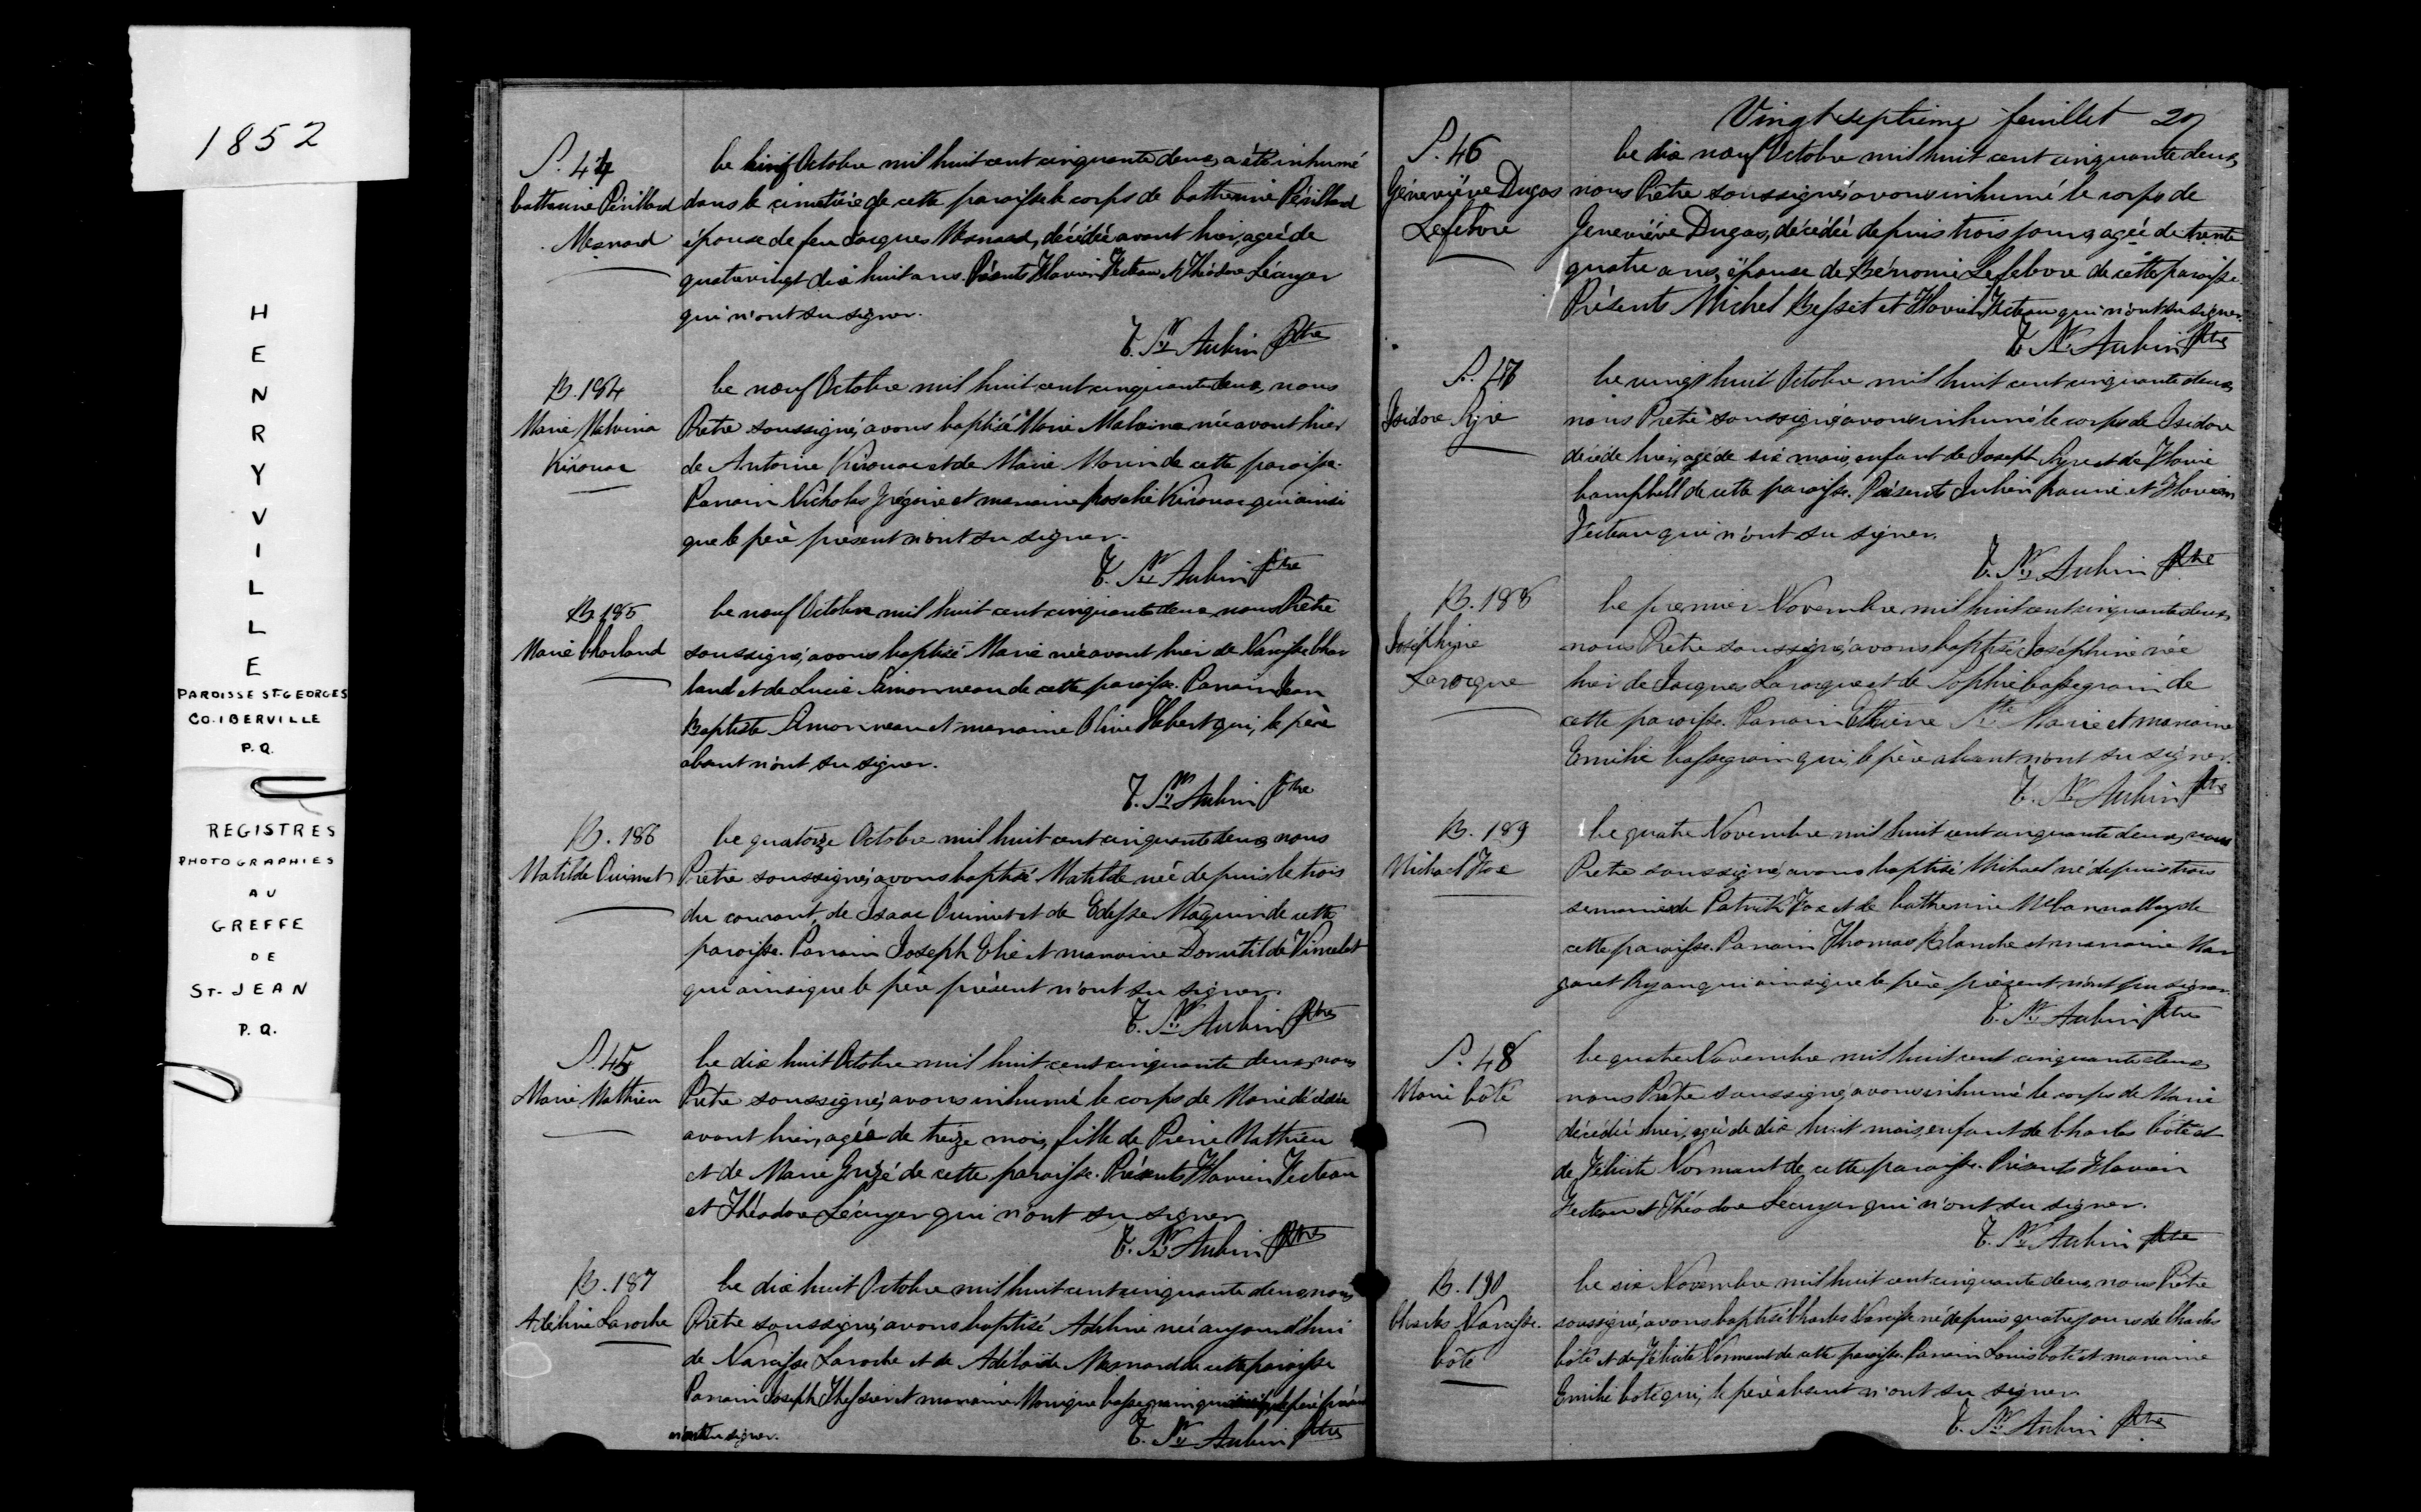 1852
HENRYVILLE
PAROISSE ST-GEORGES
CO. IBERVILLE
P.Q.
REGISTRES
PHOTOGRAPHIES
AU
GREFFE
DE
ST-JEAN
P.Q.
S. 44
Catherine Périllard
Mesnard
Le Octobre mil huit cent cinquante deux, a été inhumé
dans le cimetière de cette paroisse le corps de Catherine Périllard
épouse de feu Jacques Mesnard, décédée avant hier, agée de
quatrevingt dix huit ans. Présents Flavien Fecteau et Théodore Lécuyer
qui n'ont su signer.
T. St Aubin Ptre
B. 184
Marie Malvina
Kirouac
Le neuf Octobre mil huit cent cinquante deux, nous
Prêtre soussigné, avons baptisé Marie Malvina née avant hier
de Antoine Kirouac et de Marie Morin de cette paroisse.
Parrain Nicholas Grégoire et marraine Rosalie Kirouac qui ainsi
que le père présent n'ont su signer.
T. St Aubin Ptre
B. 185
Marie Charland
Le neuf Octobre mil huit cent cinquante deux nous Prêtre
soussigné, avons baptisé Marie née avant hier de Narcisse Char
land et de Lucie Simonneau de cette paroisse. Parrain Jean
Baptiste Simonneau et marraine Olive Hébert qui, le père
absent n'ont su signer.
T. St Aubin Ptre
B. 186
Matilde Ouimet
Le quatorze Octobre mil huit cent cinquante deux, nous
Prêtre soussigné, avons baptisé Matilde née depuis le trois
du courant, de Isaac Ouimet et de Edesse Maguin de cette
paroisse. Parrain Joseph Elie et marraine Domitilde Vincelet
qui ainsi que le père présent n'ont su signer.
T. St Aubin Ptre
S. 45
Marie Mathieu
Le dix huit Octobre mil huit cent cinquante deux, nous
Prêtre soussigné, avons inhumé le corps de Marie décédée
avant hier, agée de treize mois, fille de Pierre Mathieu
et de Marie Guizé de cette paroisse. Présents Flavien Fecteau
et Théodore Lécuyer qui n'ont su signer
T. St Aubin Ptre
B. 187
Adéline Laroche
Le dix huit Octobre mil huit cent cinquante deux, nous
Prêtre soussigné, avons baptisé Adéline née aujourd'hui
de Narcisse Laroche et de Adélaïde Mesnard de cette paroisse
Parrain Joseph Thessier et marraine Monique Cassegrain qui le père présent
n'ont su signer.
T. St Aubin Ptre
Vingt septieme feuillet 27
S. 46
Géneviève Dugas
Lefebvre
Le dix neuf Octobre mil huit cent cinquante deux,
nous Prêtre soussigné, avons inhumé le corps de
Geneviève Dugas, décédée depuis trois jours, agée de trente
quatre ans, épouse de Bénonie Lefebvre de cette paroisse.
Présents Michel Besset et Flavien Fecteau qui n'ont su signer.
T. St Aubin Ptre
S. 47
Isidore Cyre
Le vingt huit Octobre mil huit cent cinquante deux,
nous Prêtre soussigné, avons inhumé le corps de Isidore
décédé hier, agé de six mois, enfant de Joseph Cyre et de Flavie
Campbell de cette paroisse. Présents Julien et Flavien
Fecteau qui n'ont su signer.
T. St Aubin Ptre
B. 188
Joséphine
Larocque
Le premier Novembre mil huit cent cinquante deux,
nous Prêtre soussigné, avons baptisé Joséphine née
hier de Jacques Larocque et de Sophie Cassegrain de
cette paroisse. Parrain Etienne Ste Marie et marraine
Emilie Cassegrain qui, le père absent n'ont su signer.
T. St Aubin Ptre
B. 189
Michael Fox
Le quatre Novembre mil huit cent cinquante deux, nous
Prêtre soussigné, avons baptisé Michael né depuis trois
semaines de Patrick Fox et de Catherine McConnallay de
cette paroisse. Parrain Thomas Blanche et marraine Mar
garet Ryan qui ainsi que le père présent n'ont pu signer.
T. St Aubin Ptre
S. 48
Marie Coté
Le quatre Novembre mil huit cent cinquante deux,
nous Prêtre soussigné, avons inhumé le corps de Marie
décédée hier, agée de dix huit mois, enfant de Charles Coté et
de Félicité Normant de cette paroisse. Présents Flavien
Fecteau et Théodore Lecuyer qui n'ont su signer.
T. St Aubin Ptre
B. 190
Charles Narcisse
Coté
Le six Novembre mil huit cent cinquante deux, nous Prêtre
soussigné, avons baptisé Charles Narcisse né depuis quatre jours de Charles
Coté et de Félicité Normant de cette paroisse. Parrain Louis Coté et marraine
Emilie Coté qui, le père absent n'ont su signer.
T. St Aubin Ptre